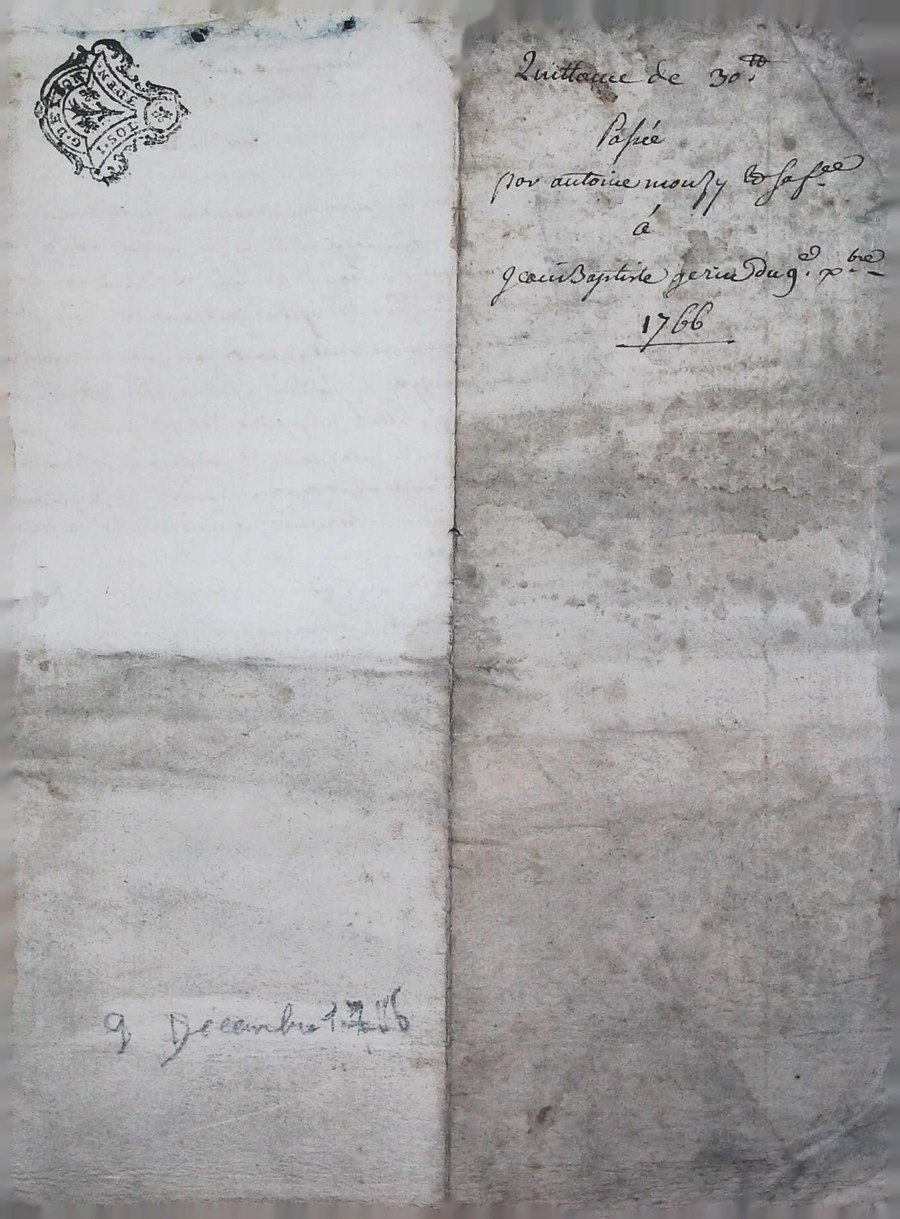 G. DE LYON
1 SOL
3 DEN
Quittance de 30.tt
Passée
par antoine mouzy & sa f.
á
Jean Baptiste gerin Du 9.e xbre
1766
9 Décembre 1766